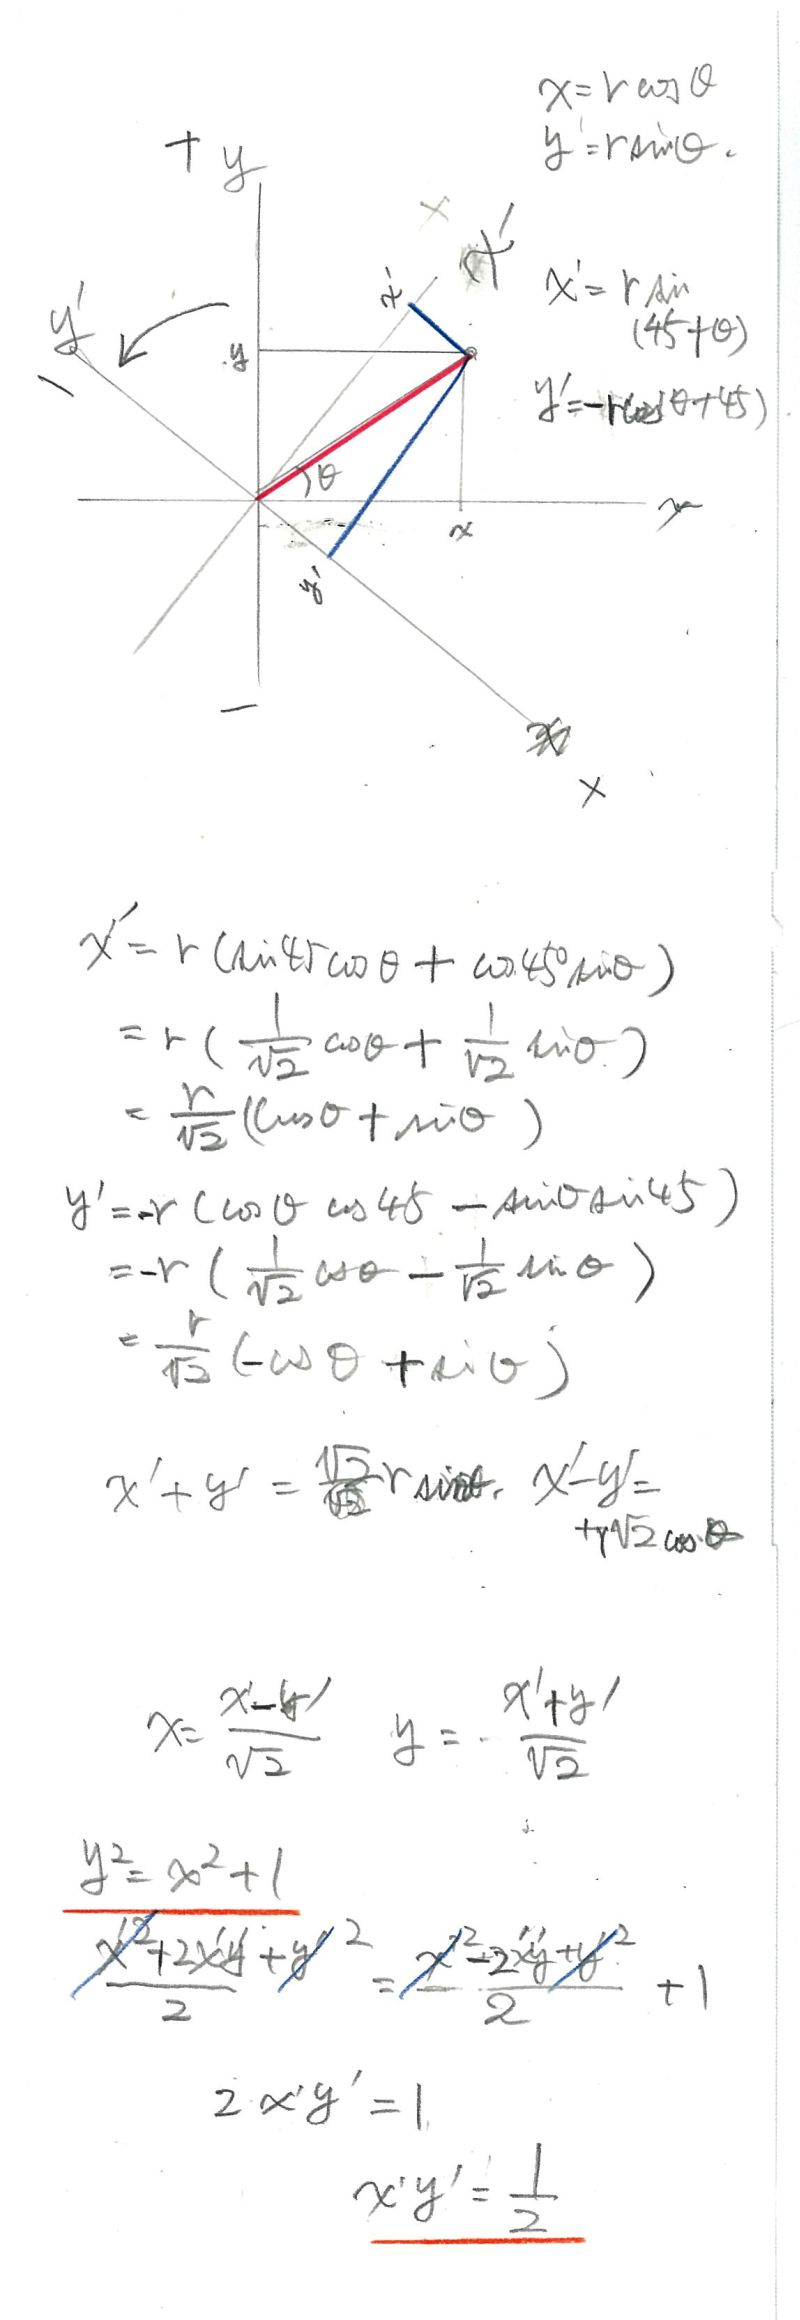 x = r cos θ
y' = r sin θ.
+ y
x
x'
x'
x' = r sin
(45 + θ)
y'
y
y' = -r cos(θ + 45)
-
θ
x
x
y'
-
x
x' = r (sin 45 cos θ + cos 45° sin θ)
= r ( 1/√2 cos θ + 1/√2 sin θ )
= r/√2 (cos θ + sin θ )
y' = -r (cos θ cos 45 - sin θ sin 45 )
= -r ( 1/√2 cos θ - 1/√2 sin θ )
= r/√2 (-cos θ + sin θ )
x' + y' = √2 r sin θ. x' - y' =
+r√2 cos θ
x = x' - y' / √2 y = x' + y' / √2
y² = x² + 1
x'² + 2x'y' + y'² / 2 = x'² - 2x'y' + y'² / 2 + 1
2 x'y' = 1
x'y' = 1/2